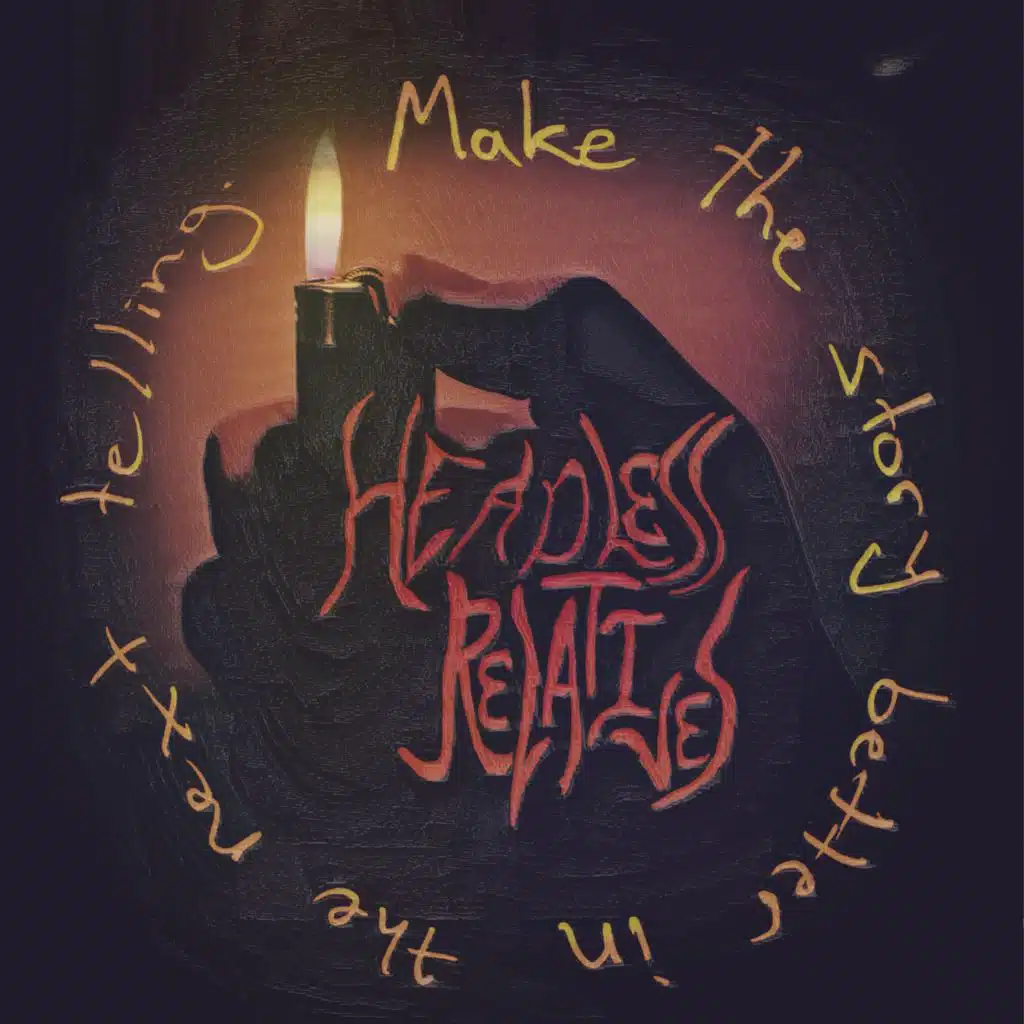 Make the story better in the next tellling.
HEADLESS
RELATIVES